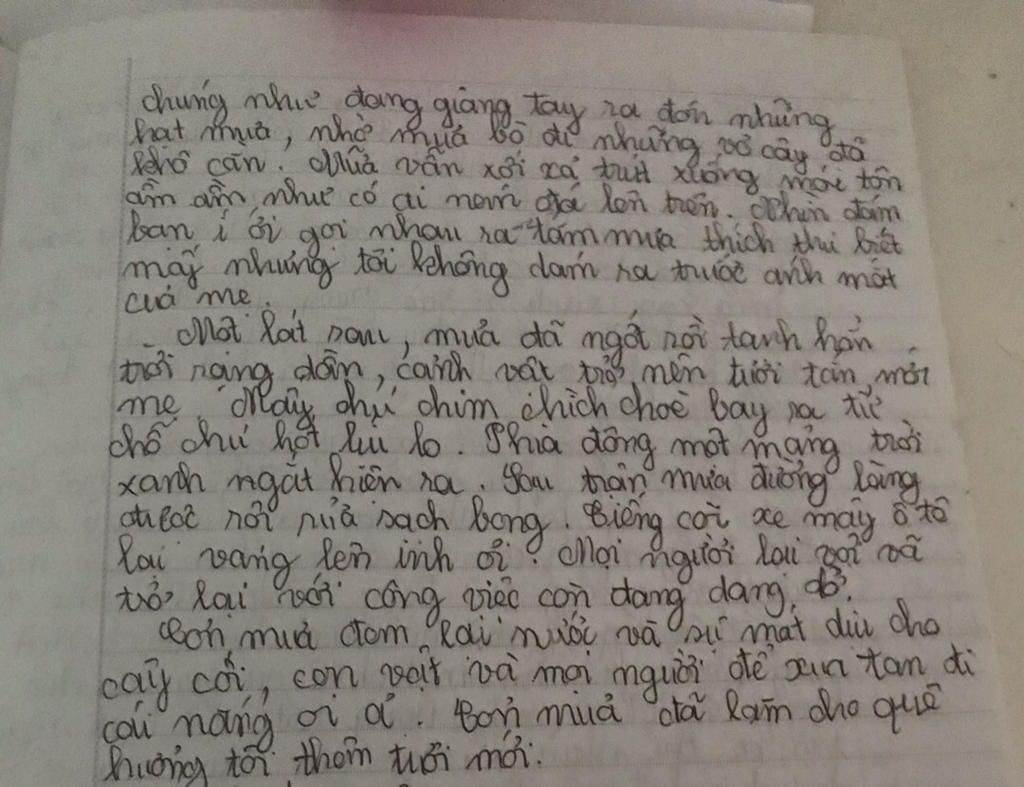 chúng như đang giang tay ra đón những
hạt mưa, nhờ mưa bỏ đi những vỏ cây đã
khô cằn. Mưa vẫn xối xả trút xuống mái tôn
ầm ầm như có ai ném đá lên trên. Nhìn đám
bạn í ới gọi nhau ra tắm mưa thích thú biết
mấy nhưng tôi không dám ra trước ánh mắt
của mẹ.
Một lát sau, mưa đã ngớt rồi tạnh hẳn.
trời sáng dần, cảnh vật trở nên tươi tắn, mới
mẻ. Mấy chú chim chích choè bay ra từ
chỗ chú hót líu lo. Phía đông một mảng trời
xanh ngắt hiện ra. Sau trận mưa đường làng
được rồi rửa sạch bong. Tiếng còi xe máy ô tô
lại vang lên inh ỏi. Mọi người lại vội vã
trở lại với công việc còn dang dang dở.
Cơn mưa đem lại nước và sự mát dịu cho
cây cối, con vật và mọi người để xua tan đi
cái nắng oi ả. Cơn mưa đã làm cho quê
hương tôi thêm tươi mới.